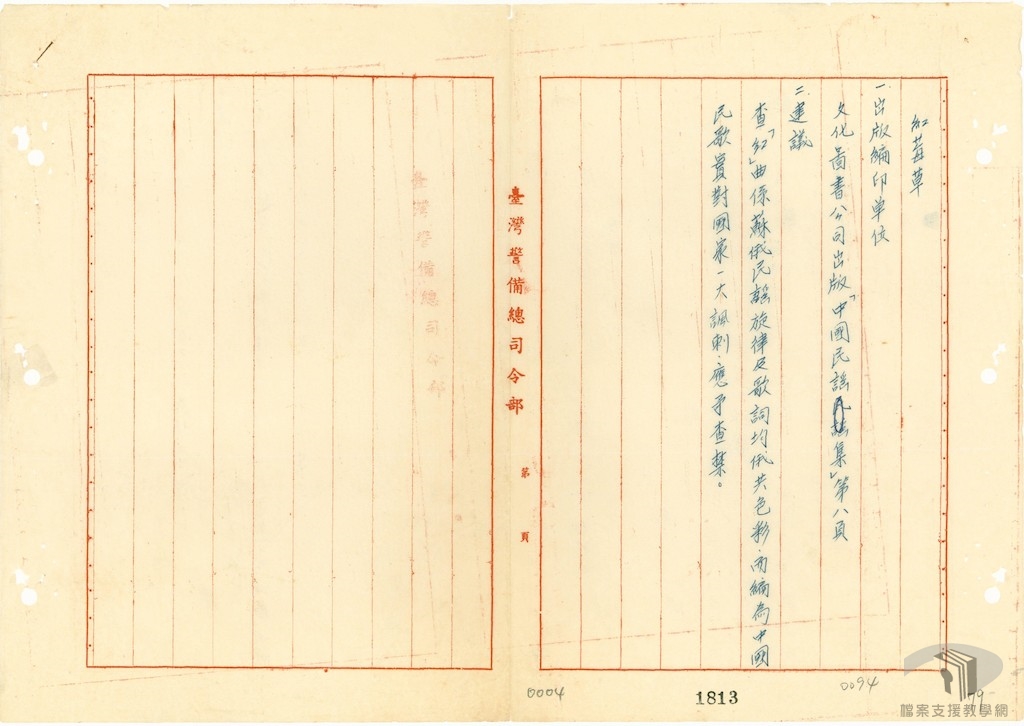 紅莓草
一、出版編印单位
文化圖書公司出版「中國民謠集」第八頁
二、建議
查「紅」曲係蘇俄民謠旋律及歌詞均俄共色彩，而編為中國
民歌實對國家一大諷刺，應予查禁。
臺灣警備總司令部
第 頁
臺灣警備總司令部
0004
1813
0094
79
檔案支援教學網